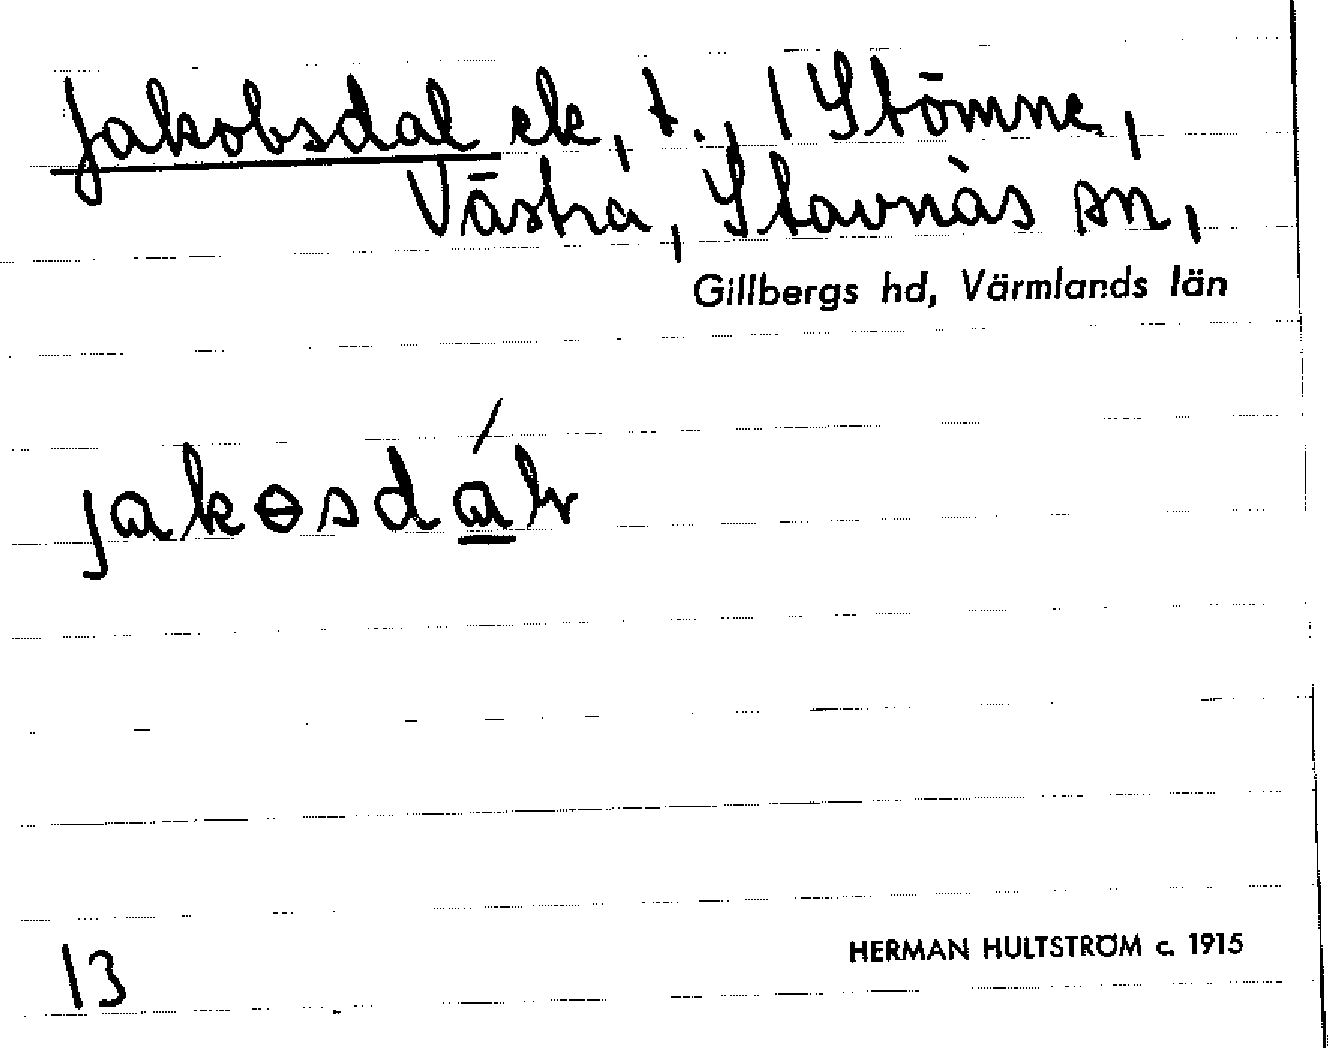 Jakobsdal ek, t., 1 Stömne,
Västra, Stavnäs sn,
Gillbergs hd, Värmlands län
jakɵsdáɫ
13
HERMAN HULTSTRÖM c. 1915